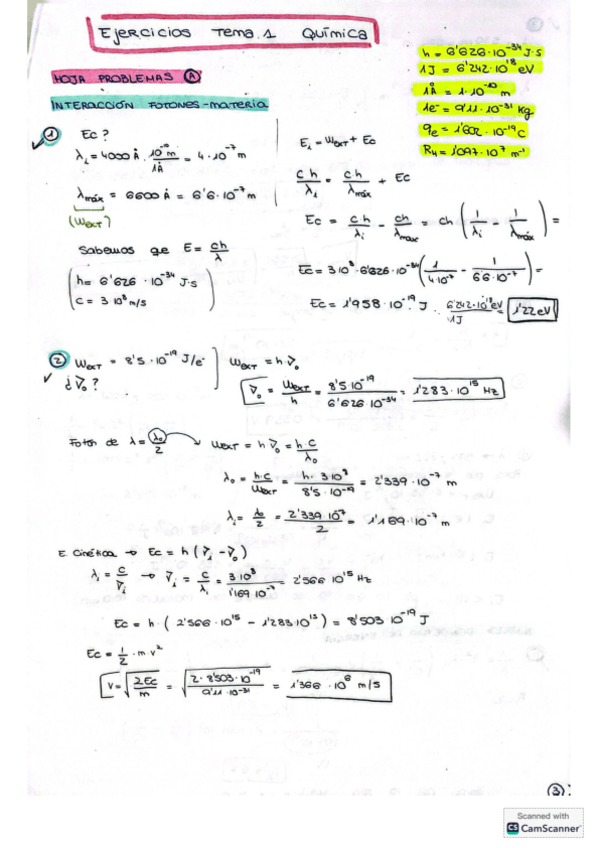 Ejercicios Tema.1 Química
h = 6'626·10⁻³⁴ J·s
1J = 6'242·10¹⁸ eV
1Å = 1·10⁻¹⁰ m
1e⁻ = 9'11·10⁻³¹ kg
qe = 1'602·10⁻¹⁹ C
R_H = 1'097·10⁷ m⁻¹
HOJA PROBLEMAS A
INTERACCIÓN FOTONES-MATERIA
1 Ec?
λi = 4000 Å · 10⁻¹⁰m / 1Å = 4·10⁻⁷ m
λmáx = 6600 Å = 6'6·10⁻⁷ m
(Wext)
Sabemos que E = ch/λ
h = 6'626·10⁻³⁴ J·s
c = 3·10⁸ m/s
Ei = Wext + Ec
ch/λi = ch/λmáx + Ec
Ec = ch/λi - ch/λmax = ch (1/λi - 1/λmáx) =
Ec = 3·10⁸·6'626·10⁻³⁴ (1/4·10⁻⁷ - 1/6'6·10⁻⁷) =
Ec = 1'958·10⁻¹⁹ J · 6'242·10¹⁸ eV / 1J = 1'22 eV
2 Wext = 8'5·10⁻¹⁹ J/e⁻
¿ν₀?
Wext = h·ν₀
ν₀ = Wext/h = 8'5·10⁻¹⁹ / 6'626·10⁻³⁴ = 1'283·10¹⁵ Hz
Fotón de λ = λ₀/2 → Wext = hν₀ = h·c/λ₀
λ₀ = h·c/Wext = h·3·10⁸ / 8'5·10⁻¹⁹ = 2'339·10⁻⁷ m
λi = λ₀/2 = 2'339·10⁻⁷ / 2 = 1'169·10⁻⁷ m
E. Cinética → Ec = h (νi - ν₀)
λi = c/νi → νi = c/λi = 3·10⁸ / 1'169·10⁻⁷ = 2'566·10¹⁵ Hz
Ec = h·(2'566·10¹⁵ - 1'283·10¹⁵) = 8'503·10⁻¹⁹ J
Ec = 1/2 · m·v²
v = √(2Ec/m) = √(2·8'503·10⁻¹⁹ / 9'11·10⁻³¹) = 1'366·10⁶ m/s
3
Scanned with
CS CamScanner